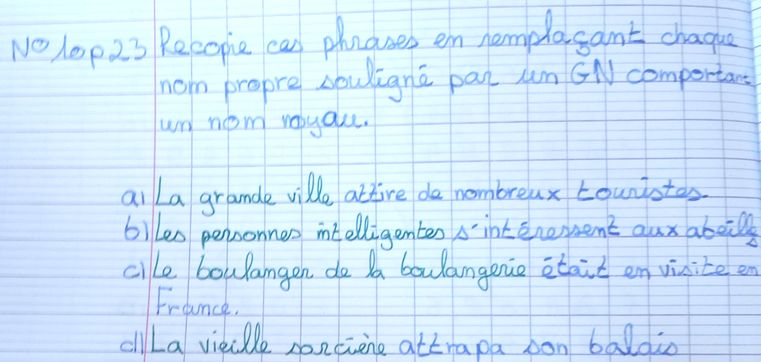 N° 10p23 Recopie ces phrases en remplaçant chaque
nom propre souligné par un GN comportant
un nom noyau.
a) La grande ville attire de nombreux touristes.
b) Les personnes intelligentes s'intéressent aux abeilles
c) Le boulanger de la boulangerie était en visite en
France.
d) La vieille sorcière attrapa son balais